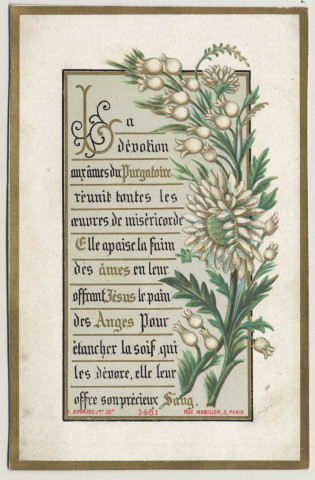 La
dévotion
aux âmes du Purgatoire
réunit toutes les
œuvres de miséricorde
Elle apaise la faim
des âmes en leur
offrant Jésus le pain
des Anges Pour
étancher la soif qui
les dévore, elle leur
offre son précieux Sang.
3461 RUE MABILLON, 5, PARIS